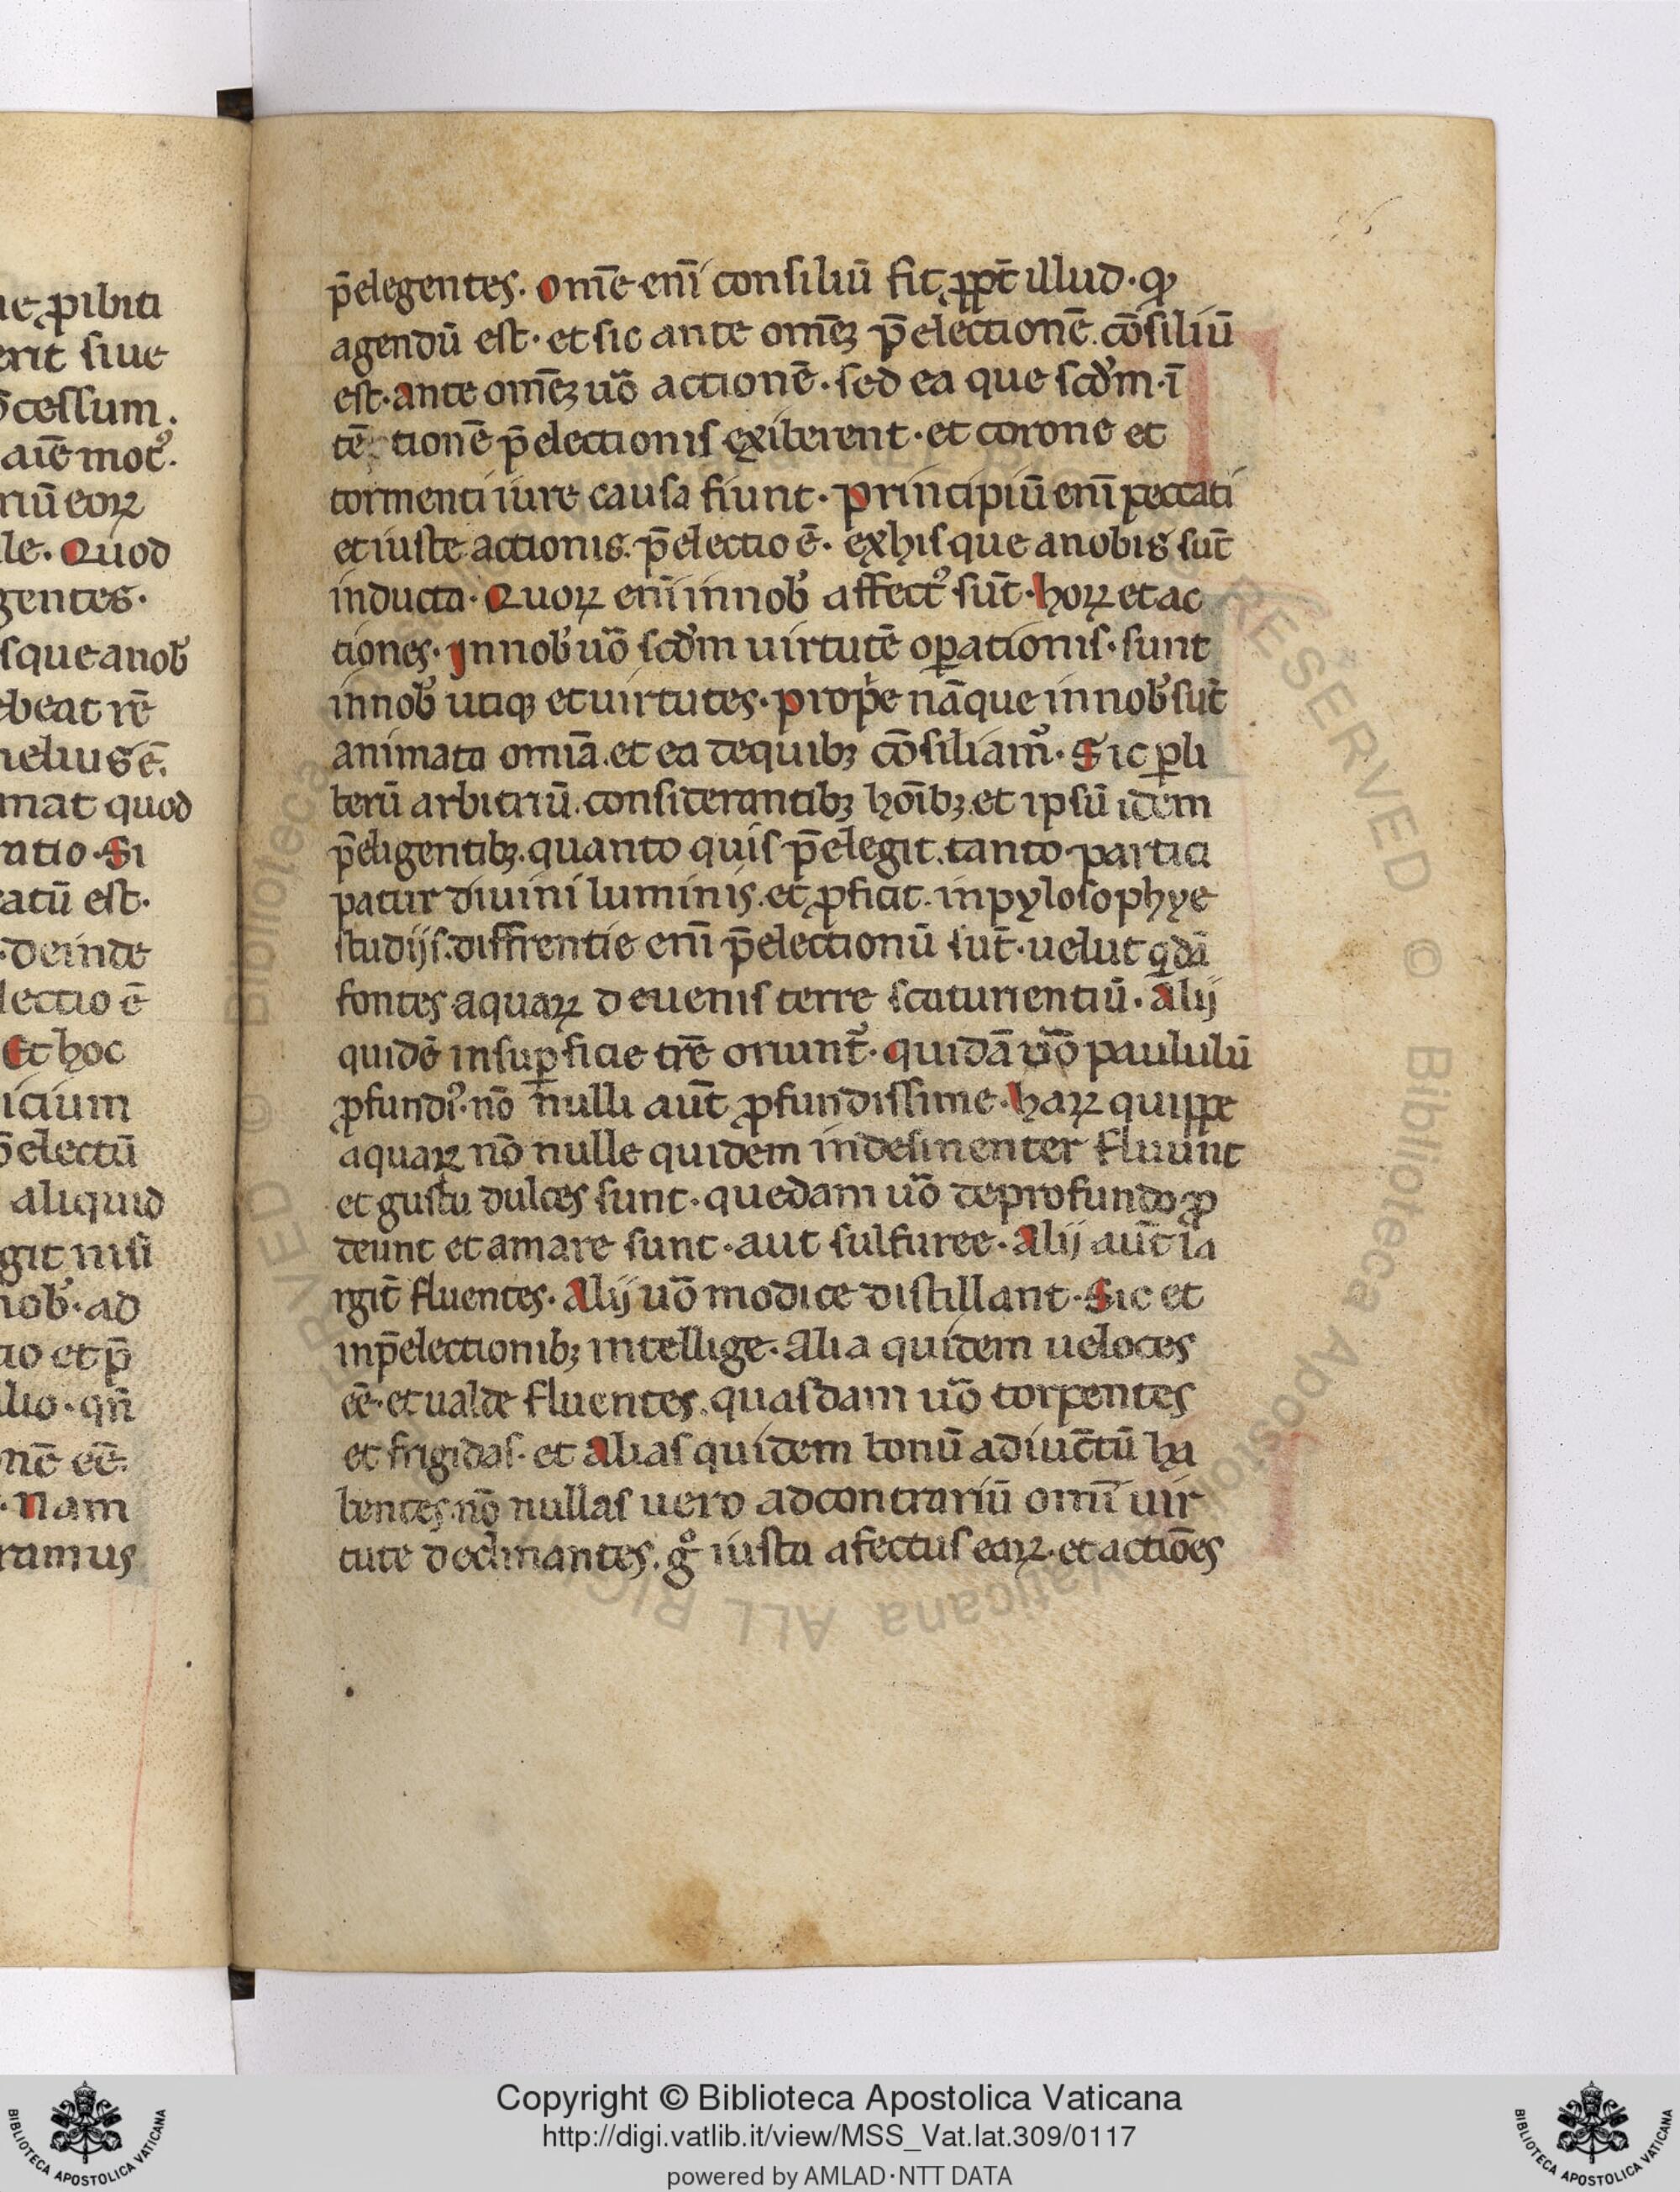 ue ꝓibiti
erit siue
ō cessum.
aīe mot᷒.
riū eoꝝ
le. Quod
gentes.
sque anob̄
ebeat rē
melius ē.
mat quod
ratio. Si
atū est.
. deinde
lectio ē
Et hoc
icium
p̄electū
aliquid
git nisi
nob̄. ad
tio et p̄
lio. qn̄
nē eē.
. Nam
ramus
p̄elegentes. Om̄e enī consiliū fit ꝓpt̄ illud. qꝫ
agendū est. et sic ante om̄eꝫ p̄electionē. cōsiliū
est. ante om̄eꝫ uō actionē. sed ea que scd̄m. ī
tē tionē p̄electionis exiberent. et corone et
tormenti iure causa fiunt. principiū enī peccati
et iuste actionis. p̄electio ē. ex his que anobis sūt
inducta. Quoꝝ enī innob̄ affect᷒ sūt. hoꝝ et ac
tiones. Innob̄ uō scd̄m uirtutē oꝑationis. sunt
innob̄ utiqꝫ et uirtutes. prop̄e nāque innob̄ sūt
animata omīa. et ea dequibꝫ cōsiliam᷒. Sic ꝑ li
berū arbitriū. considerantibꝫ hoībꝫ. et ipsū idem
p̄eligentibꝫ. quanto quis p̄elegit. tanto partici
patur diuini luminis. et ꝓficit. in pylosophye
studijs. diffrentie enī p̄electionū sūt. uelut qdā
fontes aquaꝝ de uenis terre scaturientiū. alij
quidē insuꝑficie tr̄e oriunt᷒. quidā uō paululū
ꝓfundi᷒. nō nulli aūt ꝓfundissime. haꝝ quippe
aquaꝝ nō nulle quidem indesinenter fluunt
et gustu dulces sunt. quedam uō deprofundo ꝓ
deunt et amare sunt. aut sulfuree. alij aūt la
rgit̄ fluentes. alij uō modice distillant. Sic et
in p̄electionibꝫ intellige. alia quidem ueloces
eē. et ualde fluentes. quasdam uō torpentes
et frigidas. et alias quidem bonū adiūctū ha
bentes. nō nullas uero adcontrariū omī uir
tute declinantes. gͦ iusta afectus eaꝝ. et actiōes
Copyright © Biblioteca Apostolica Vaticana
http://digi.vatlib.it/view/MSS_Vat.lat.309/0117
powered by AMLAD·NTT DATA
BIBLIOTECA APOSTOLICA VATICANA
BIBLIOTECA APOSTOLICA VATICANA